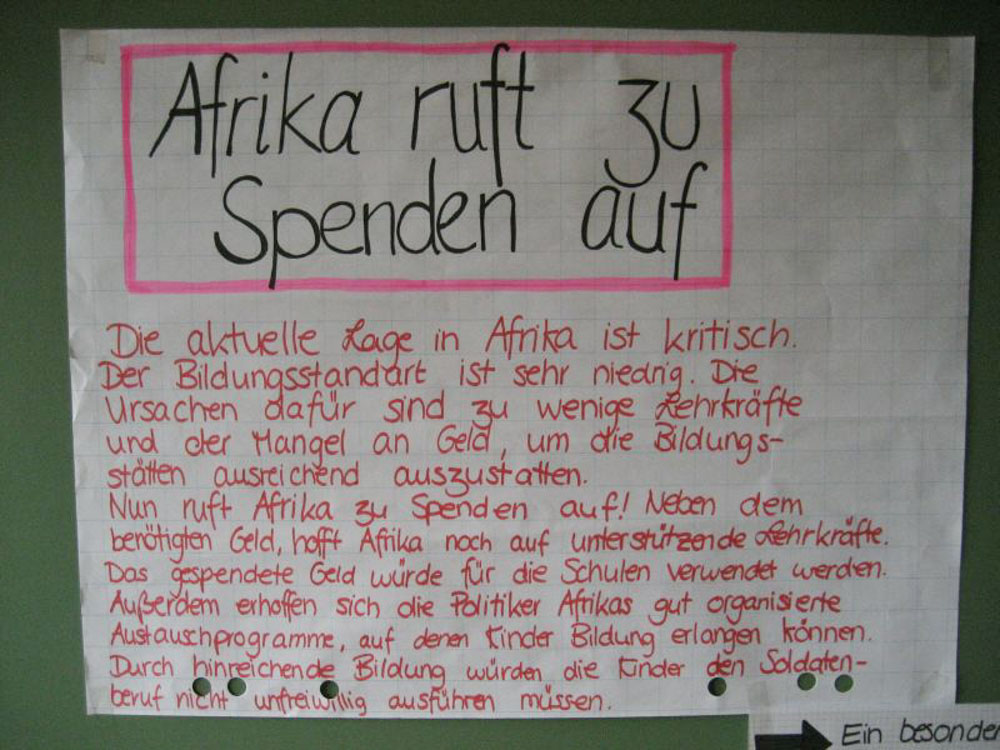 Afrika ruft zu
Spenden auf
Die aktuelle Lage in Afrika ist kritisch.
Der Bildungsstandart ist sehr niedrig. Die
Ursachen dafür sind zu wenige Lehrkräfte
und der Mangel an Geld, um die Bildungs-
stätten ausreichend auszustatten.
Nun ruft Afrika zu Spenden auf! Neben dem
benötigten Geld, hofft Afrika noch auf unterstützende Lehrkräfte.
Das gespendete Geld würde für die Schulen verwendet werden.
Außerdem erhoffen sich die Politiker Afrikas gut organisierte
Austauschprogramme, auf denen Kinder Bildung erlangen können.
Durch hinreichende Bildung würden die Kinder den Soldaten-
beruf nicht unfreiwillig ausführen müssen.
Ein besonde